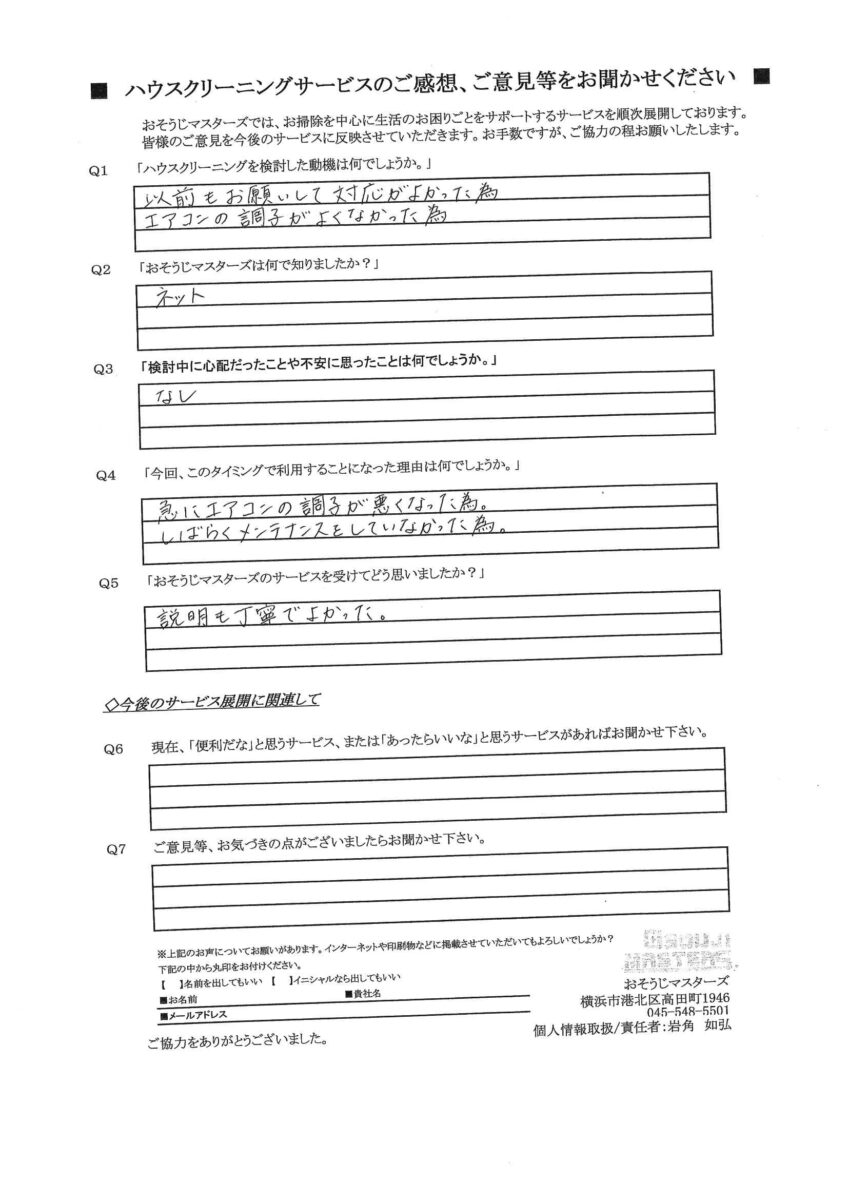 ■ ハウスクリーニングサービスのご感想、ご意見等をお聞かせください ■
おそうじマスターズでは、お掃除を中心に生活のお困りごとをサポートするサービスを順次展開しております。
皆様のご意見を今後のサービスに反映させていただきます。お手数ですが、ご協力の程お願いしたします。
Q1 「ハウスクリーニングを検討した動機は何でしょうか。」
以前もお願いして対応がよかった為
エアコンの調子がよくなかった為
Q2 「おそうじマスターズは何で知りましたか？」
ネット
Q3 「検討中に心配だったことや不安に思ったことは何でしょうか。」
なし
Q4 「今回、このタイミングで利用することになった理由は何でしょうか。」
急にエアコンの調子が悪くなった為。
しばらくメンテナンスをしていなかった為。
Q5 「おそうじマスターズのサービスを受けてどう思いましたか？」
説明も丁寧でよかった。
◇今後のサービス展開に関連して
Q6 現在、「便利だな」と思うサービス、または「あったらいいな」と思うサービスがあればお聞かせ下さい。
Q7 ご意見等、お気づきの点がございましたらお聞かせ下さい。
※上記のお声についてお願いがあります。インターネットや印刷物などに掲載させていただいてもよろしいでしょうか？
下記の中から丸印をお付けください。
【　】名前を出してもいい 【　】イニシャルなら出してもいい
■お名前 ■貴社名
■メールアドレス
ご協力をありがとうございました。
おそうじマスターズ
横浜市港北区高田町1946
045-548-5501
個人情報取扱/責任者：岩角 如弘